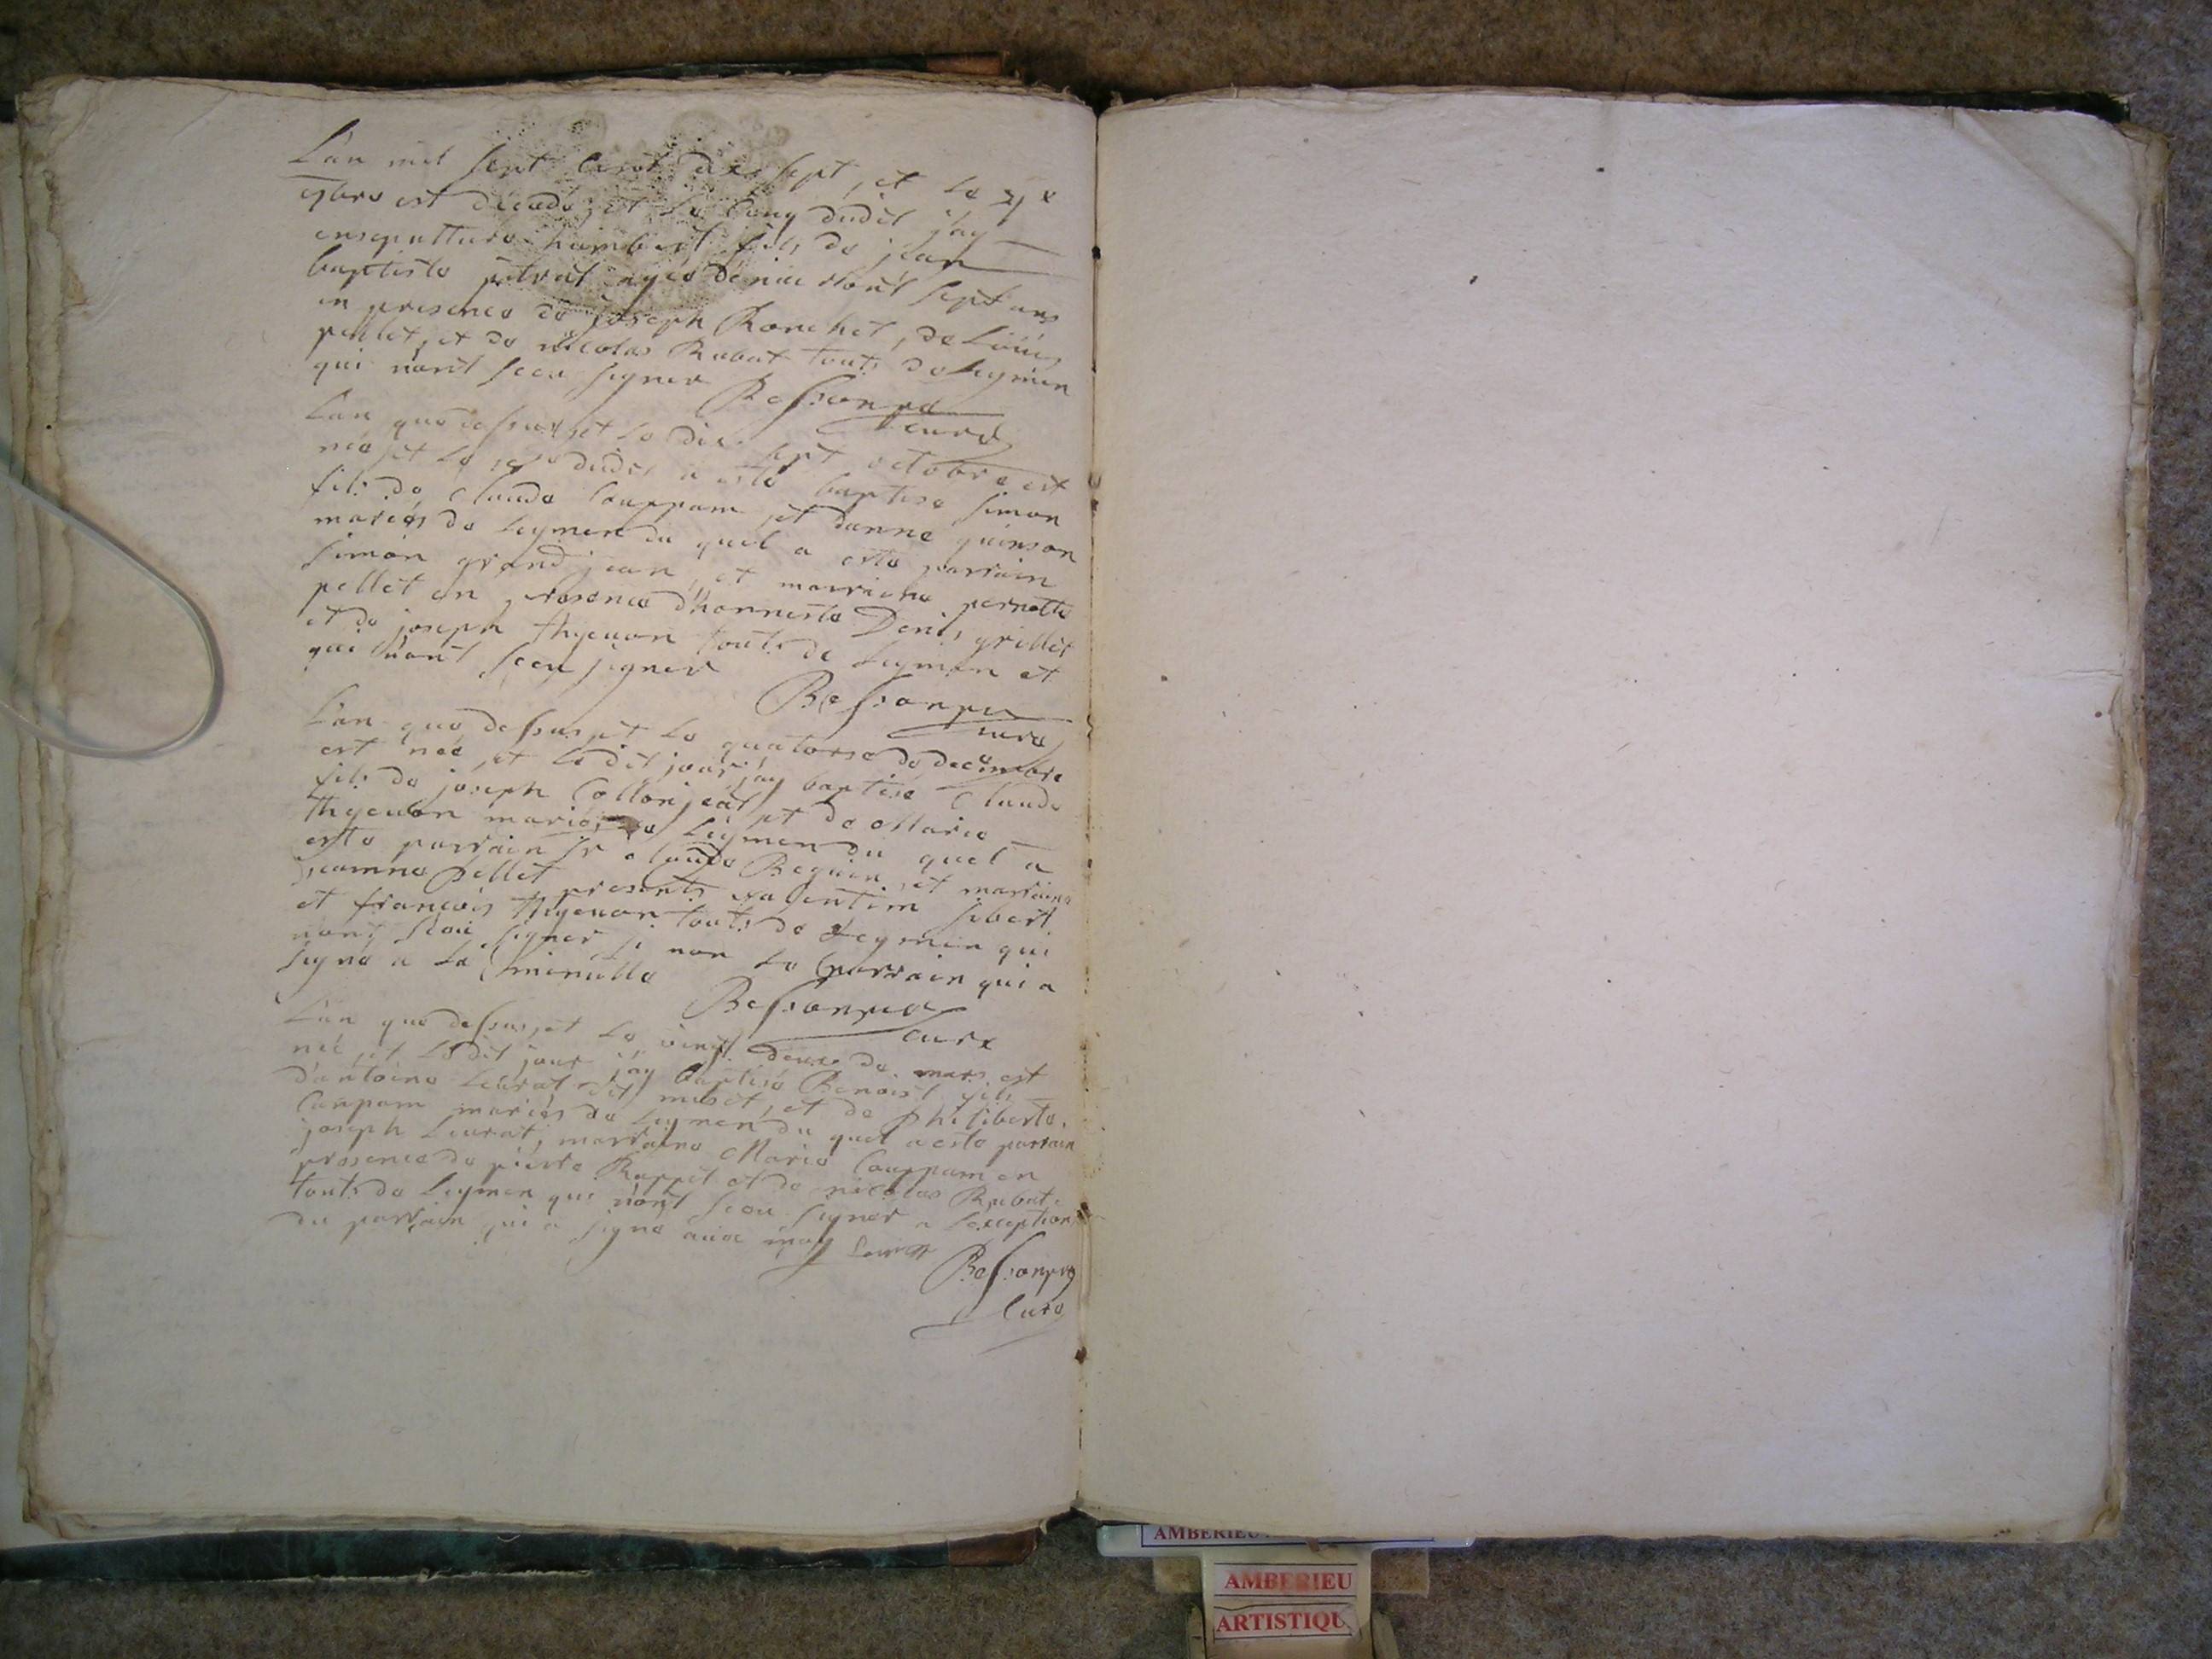 L'an mil sept cent dix sept, et le
est décédé, et le long dudit j'ay
ensepulturé humbert fils de jean
baptiste agé d'environt sept ans
en presence de joseph Ronchet, de Loüis
pellet, et de nicolas Rubat touts de Leymen
qui n'ont sceu signer Bessonpra
curé
L'an que dessus, et le dix sept octobre est
née et le dudit a esté baptisé Simon
fils de Claude Couppam, et d'anne guinson
mariés de Leymen du quel a esté parrain
Simon grand jean, et marriene pernette
pellet en presence d'honneste Denis grillet
et de joseph thyeuon touts de Leymen et
qui n'ont sceu signer
Bessonpra
curé
L'an que dessus, et le quatorse de decembre
est née, et ledit jour j'ay baptisé Claude
fils de joseph Collonjeat, et de Marie
thyeuon mariés de Leymen du quel a
esté parrain Sr Claude Beguin, et marraine
jeamne pellet presents valentim sibert
et francois thyeuon touts de Leymen qui
n'ont sceu signer si non le parrain qui a
signé a la minutte
Bessonpra
curé
L'an que dessus, et le vingt deuxe de mars est
née, et ledit jour j'ay baptisé Benoist fils
d'antoine Leurat dit muset, et de philiberte
Couppam mariés de Leymen du quel a esté parrain
joseph Leurat, marraine Marie Couppam en
presence de pierre Rappet et de nicolas Rubat
touts de Leymen qui n'ont sceu signer a l'exception
du parrain qui a signé avec moy
Bessonpra
Curé
AMBERIEU
AMBERIEU
ARTISTIQU